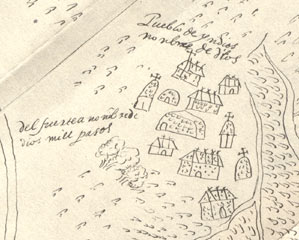 Pueblo de yndios
nonbre de Dios
del fuerte a nonbre de
dios mill pasos